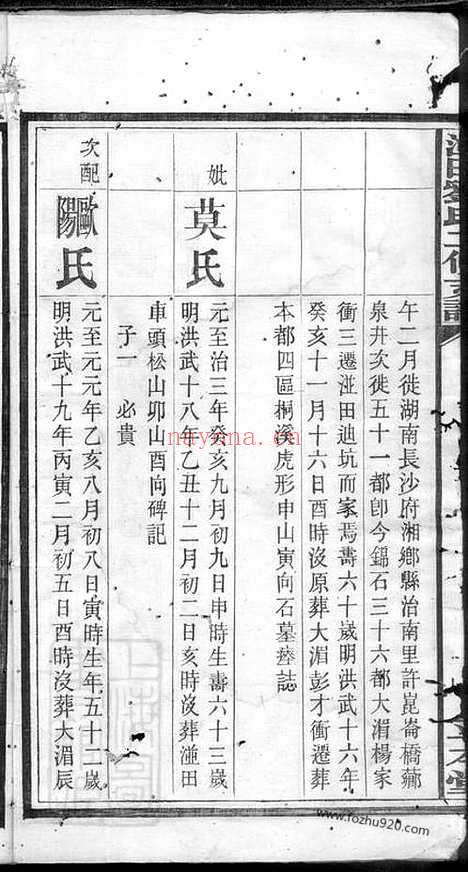 午二月徙湖南長沙府湘鄉縣治南里許崑崙橋薌
泉井次徙五十一都卽今錦石三十六都大湄楊家
衝三遷湴田迪坑而家焉壽六十歲明洪武十六年
癸亥十一月十六日酉時沒原葬大湄彭才衝遷葬
本都四區桐溪虎形申山寅向石墓瘞誌
妣
莫氏
元至治三年癸亥九月初九日申時生壽六十三歲
明洪武十八年乙丑十二月初二日亥時沒葬湴田
車頭松山卯山酉向碑記
子一 必貴
次配
歐陽氏
元至元元年乙亥八月初八日寅時生年五十二歲
明洪武十九年丙寅二月初五日酉時沒葬大湄辰
nayona.cn
www.fozhu920.com